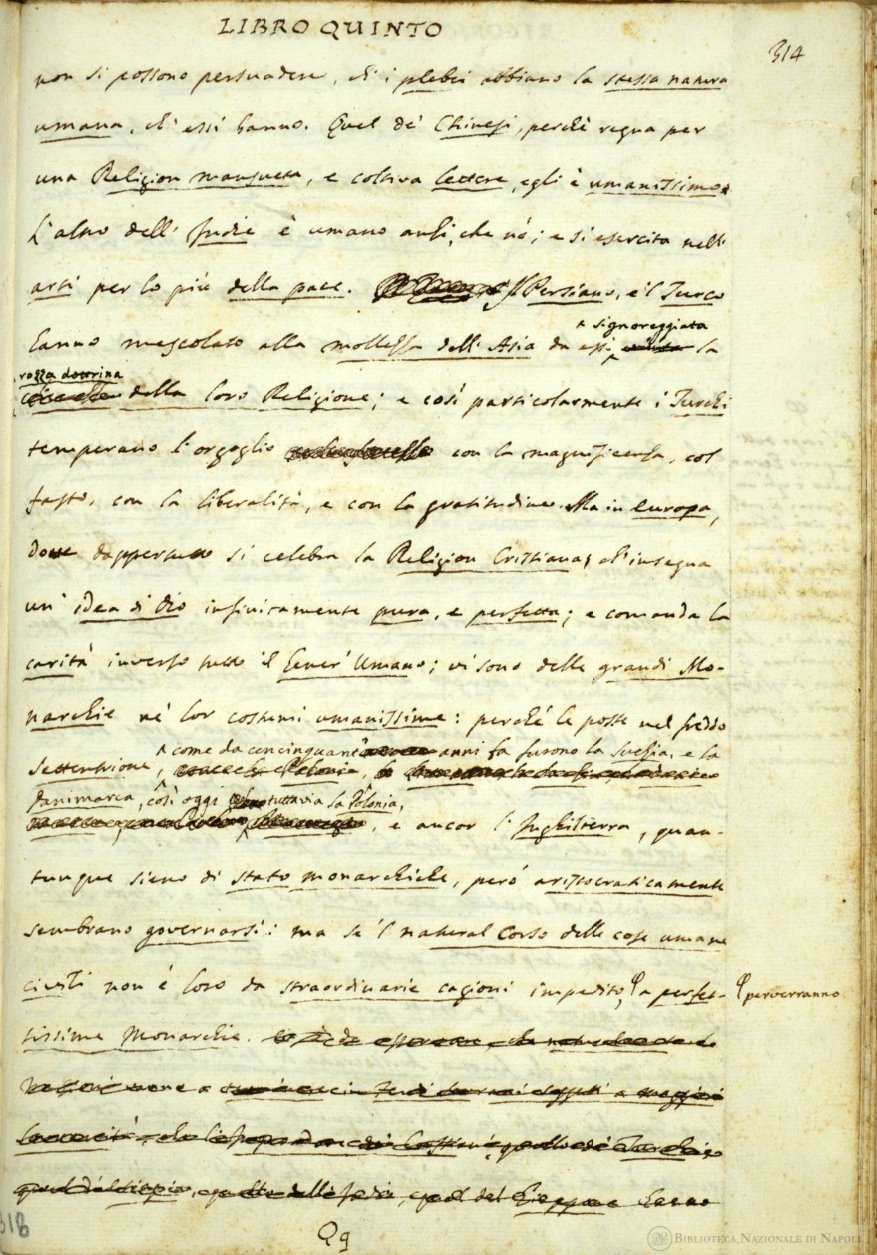 LIBRO QUINTO
314
non si possono persuadere, ch' i plebei abbiano la stessa natura
umana, ch' essi hanno. Quel de' Chinesi, perchè regna per
una Religion mansueta, e coltiva lettere, egli è umanissimo.
L'altro dell' Indie è umano anzi, che nò; e si esercita nell'
arti per lo più della pace. Il Persiano, e 'l Turco
hanno mescolato alla mollezza dell' Asia da essi
signoreggiata
la
rozza dottrina
della loro Religione; e così particolarmente i Turchi
temperano l'orgoglio con la magnificenza, col
fasto, con la liberalità, e con la gratitudine. Ma in Europa,
dove dappertutto si celebra la Religion Cristiana, ch' insegna
un' idea di Dio infinitamente pura, e perfetta; e comanda la
carità inverso tutto il Gener' Umano; vi sono delle grandi Mo-
narchie ne' lor costumi umanissime: perchè le poste nel freddo
come da cencinquant' anni fa furono la Suezia, e la
Settentrione,
Danimarca, così oggi tuttavia la Polonia,
e ancor l' Inghilterra, quan-
tunque sieno di stato monarchiche, però aristocraticamente
sembrano governarsi: ma se 'l natural corso delle cose umane
civili non è loro da straordinarie cagioni impedito, a perfet-
perverranno
tissime Monarchie.
Qq
BIBLIOTECA NAZIONALE DI NAPOLI